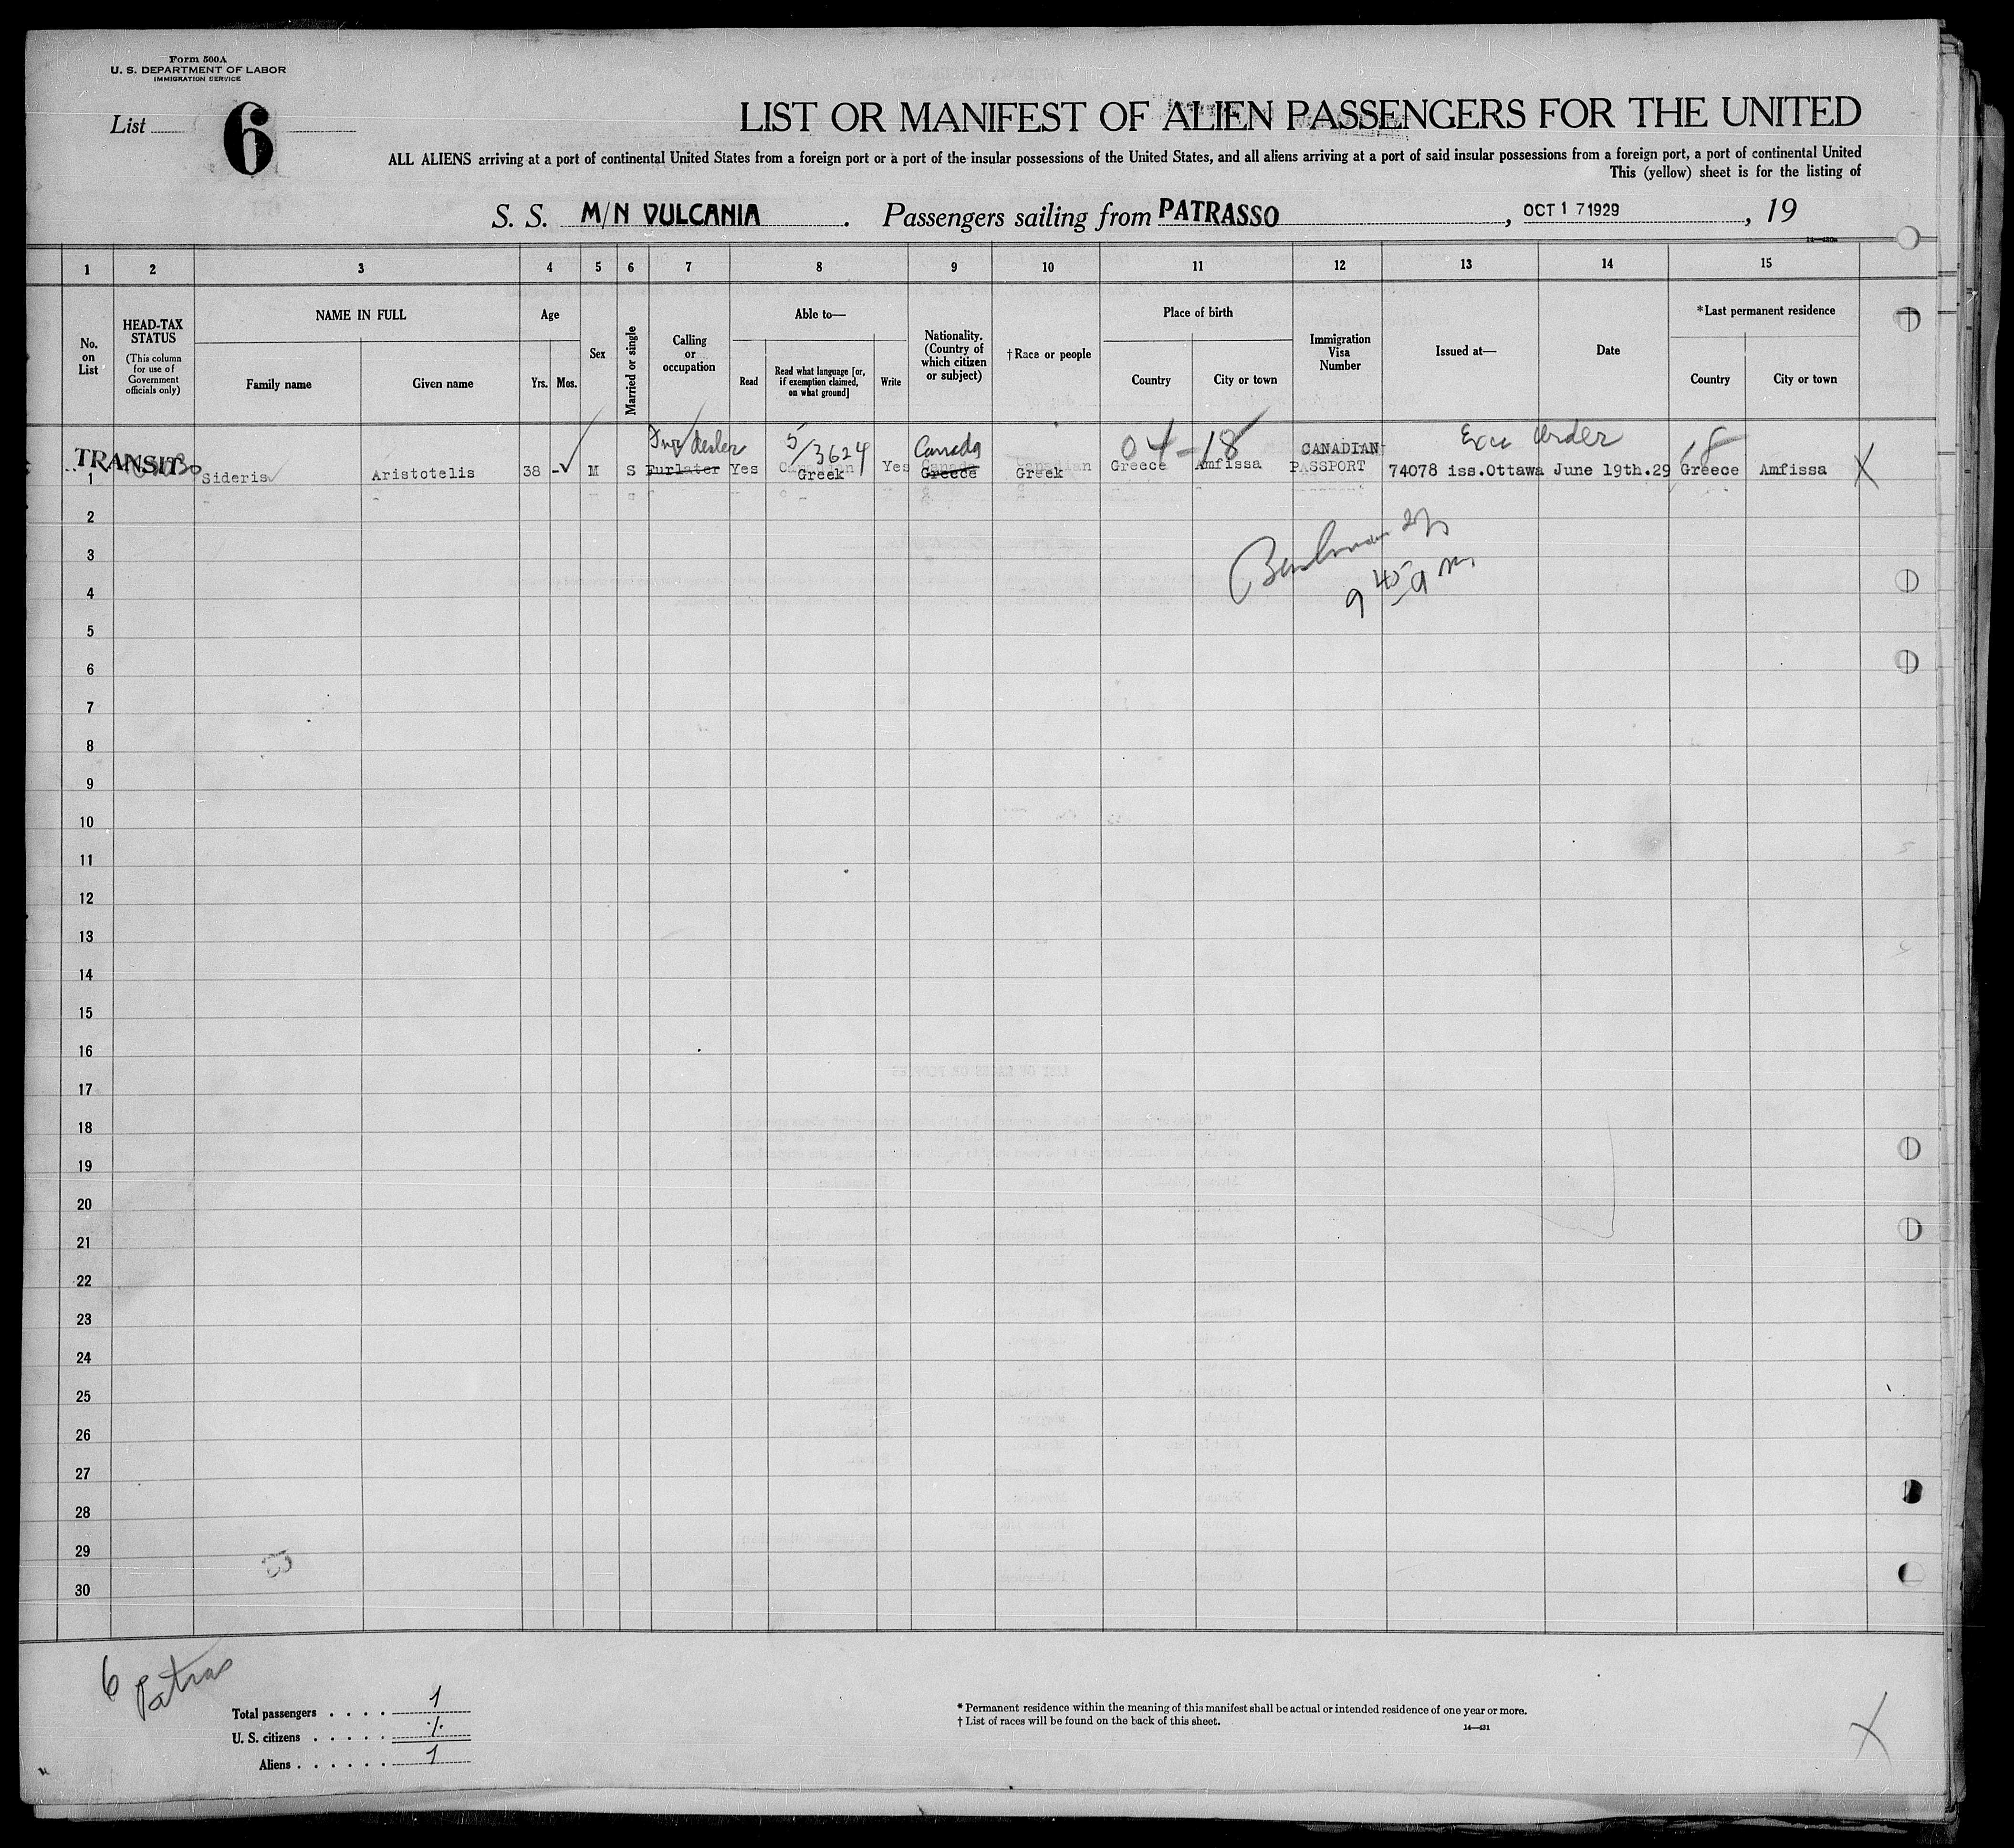 Form 500A
U. S. DEPARTMENT OF LABOR
IMMIGRATION SERVICE
List 6
LIST OR MANIFEST OF ALIEN PASSENGERS FOR THE UNITED
ALL ALIENS arriving at a port of continental United States from a foreign port or a port of the insular possessions of the United States, and all aliens arriving at a port of said insular possessions from a foreign port, a port of continental United
This (yellow) sheet is for the listing of
S. S. M/N VULCANIA. Passengers sailing from PATRASSO, OCT 1 7 1929, 19
14—430a
1 2 3 4 5 6 7 8 9 10 11 12 13 14 15
No. on List
HEAD-TAX STATUS
(This column for use of Government officials only)
NAME IN FULL
Family name
Given name
Age
Yrs. Mos.
Sex
Married or single
Calling or occupation
Able to—
Read
Read what language [or, if exemption claimed, on what ground]
Write
Nationality. (Country of which citizen or subject)
†Race or people
Place of birth
Country
City or town
Immigration Visa Number
Issued at—
Date
*Last permanent residence
Country
City or town
Fur dealer 5/3624 Canada 04-18 CANADIAN Exec Order 18
TRANSIT
1 Sideris Aristotelis 38 - M S Furlater Yes Greek Yes Greece Greek Greece Amfissa PASSPORT 74078 iss.Ottawa June 19th.29 Greece Amfissa X
2
3
9 45 a m
4
5
6
7
8
9
10
11
12
13
14
15
16
17
18
19
20
21
22
23
24
25
26
27
28
29
30
6 Patras
Total passengers . . . . 1
U. S. citizens . . . . . ./.
Aliens . . . . . . 1
* Permanent residence within the meaning of this manifest shall be actual or intended residence of one year or more.
† List of races will be found on the back of this sheet.
14—431
X